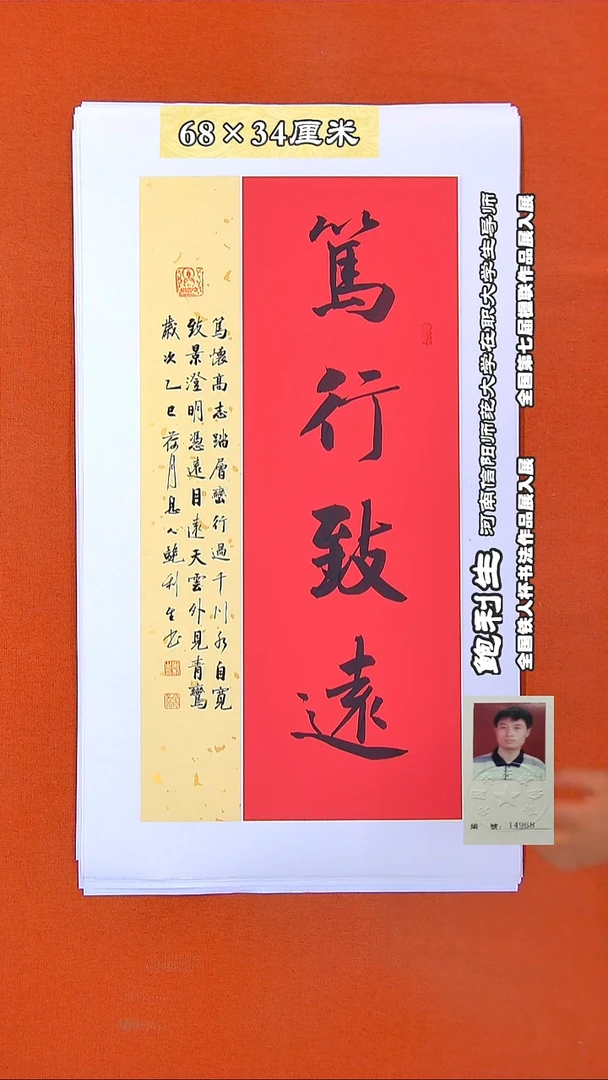 68×34厘米
篤行致遠
篤懷高志踏層巒行過千川水自寬
致景澄明憑遠目遠天雲外見青鸞
歲次乙巳荷月鮑利生書
鲍利生 河南信阳师范大学在职大学生导师
全国铁人杯书法作品展入展 全国第七届楹联作品展入展
編 號: 14968